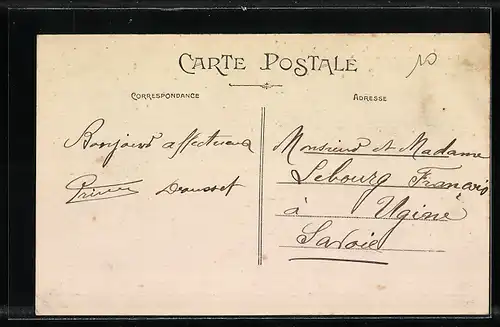 CARTE POSTALE
CORRESPONDANCE
ADRESSE
Bonjour affectueux
Drousset
Monsieur et Madame
Lebourg François
à Ugine
Savoie